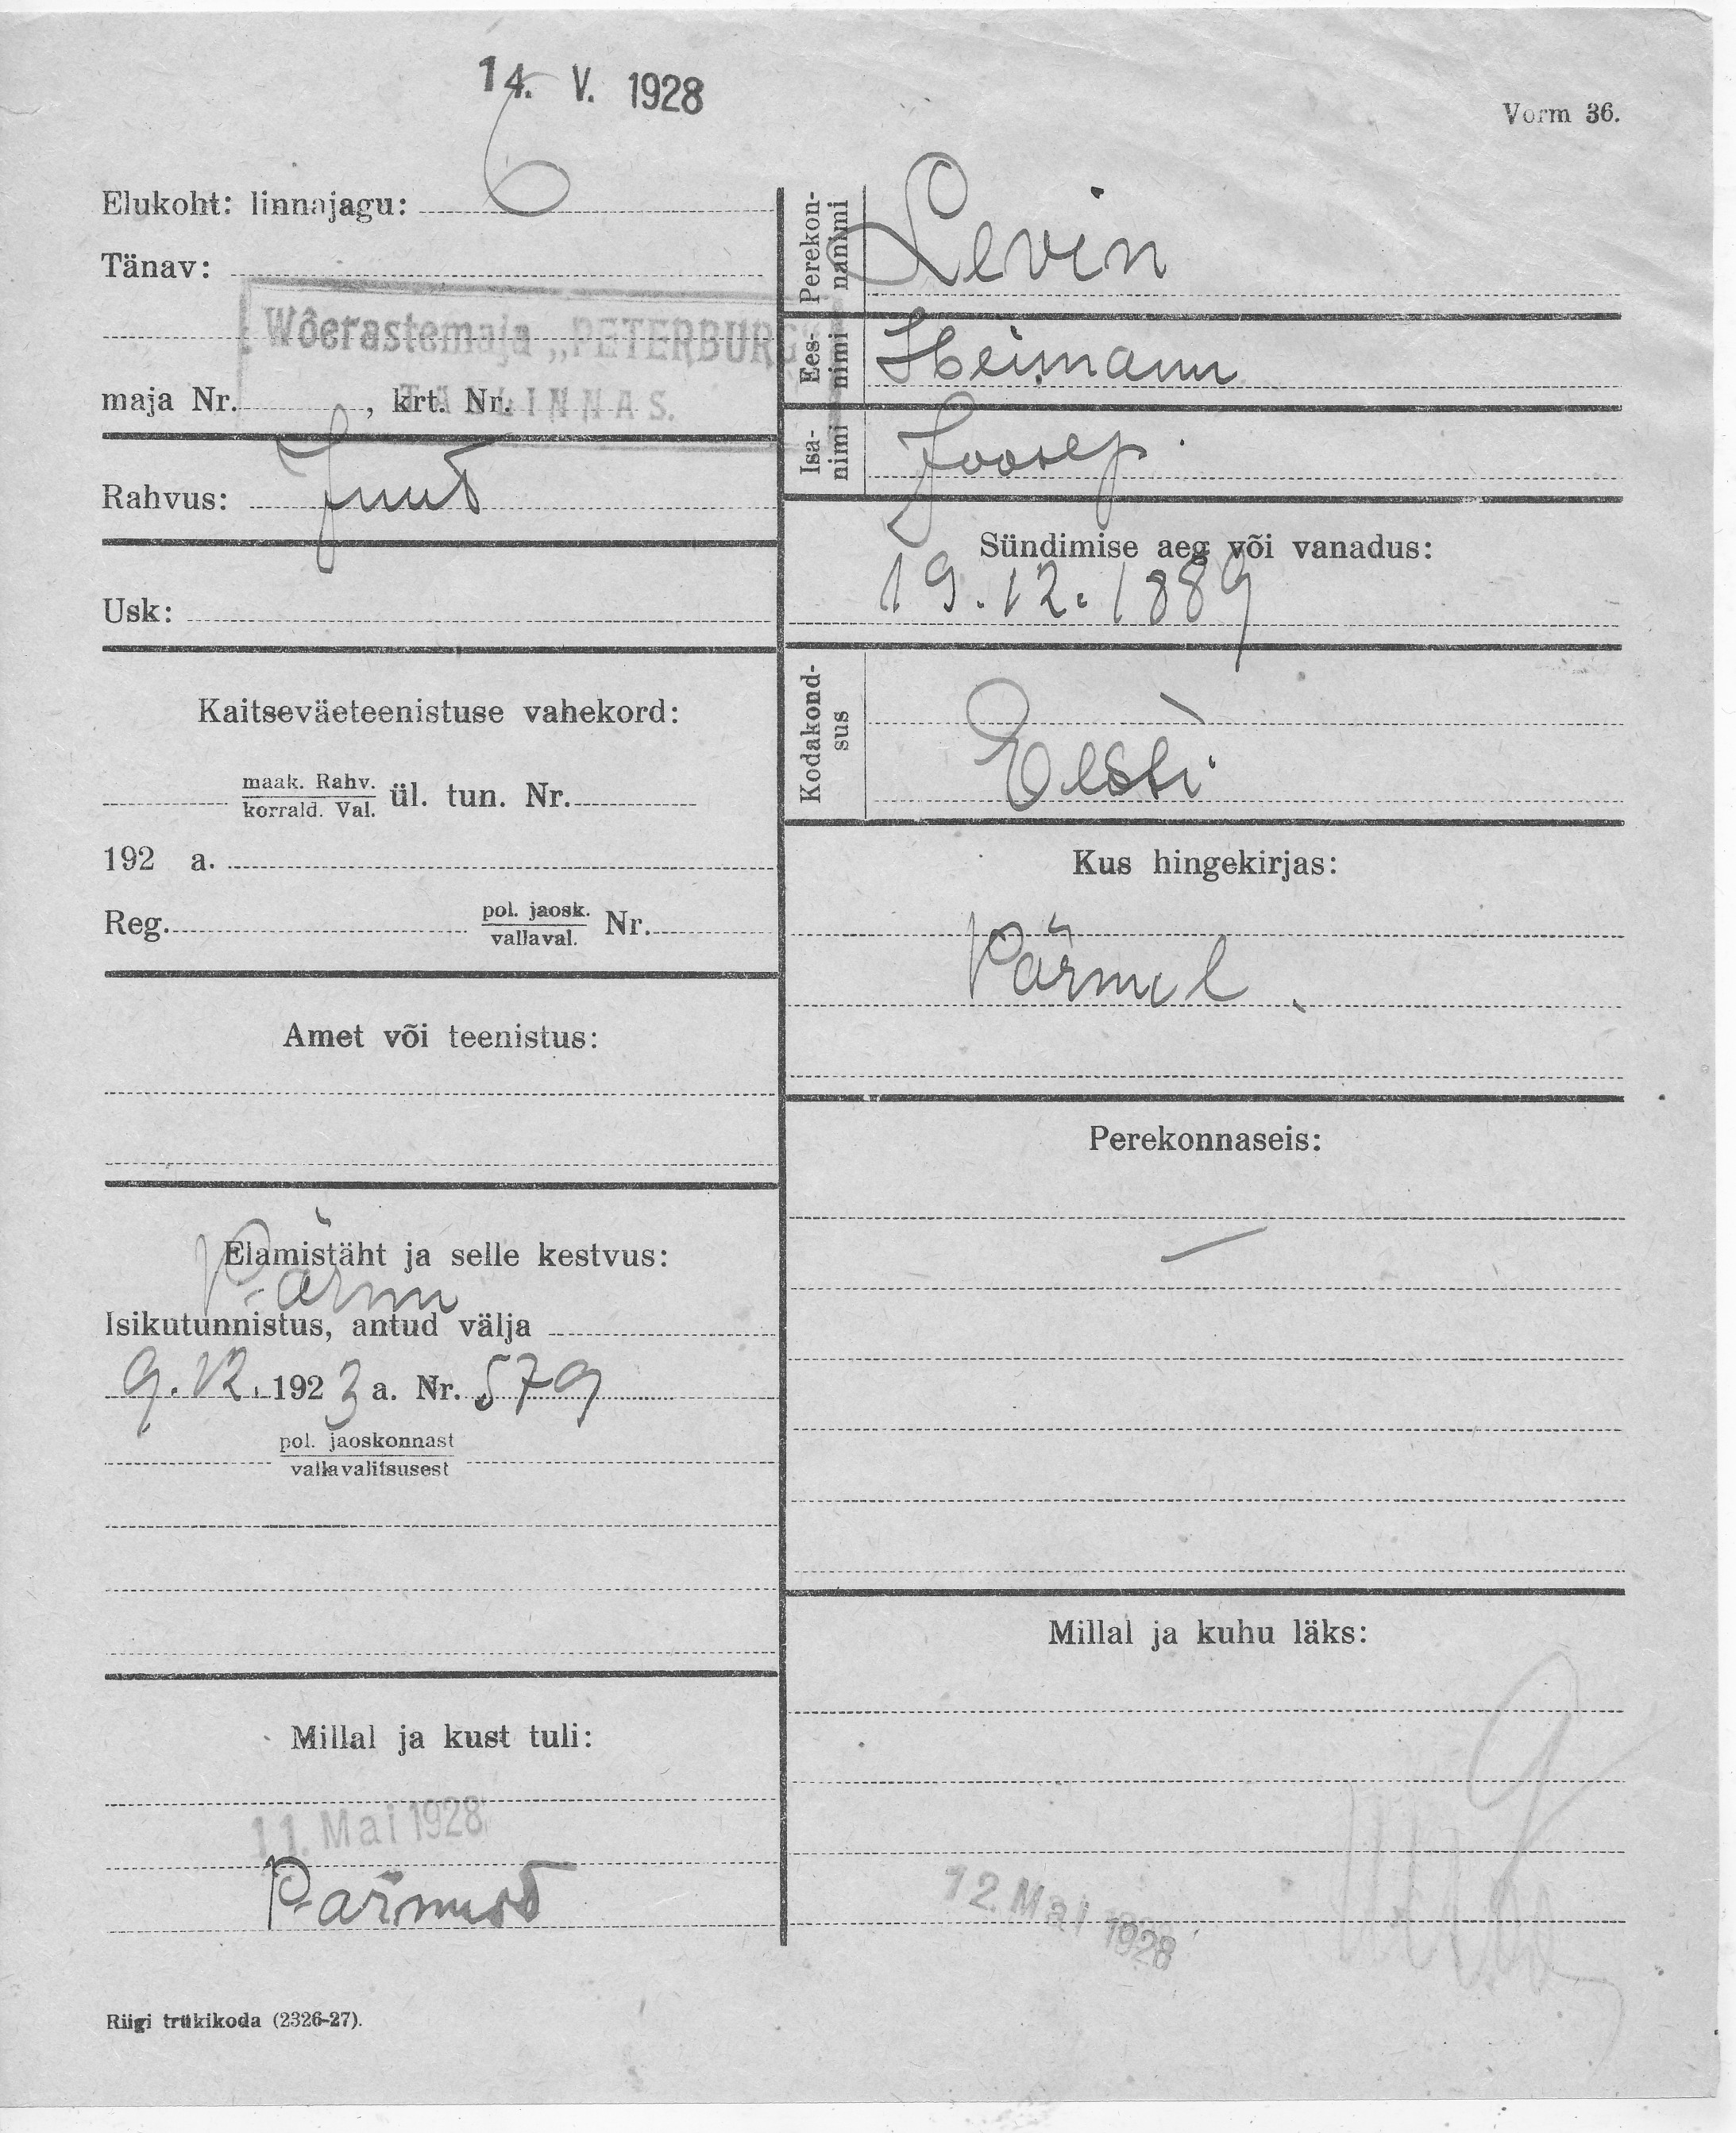 14. V. 1928
Vorm 36.
Elukoht: linnajagu: 6
Tänav:
Wõerastemaja „PETERBURG“
TALLINNAS.
maja Nr. , krt. Nr.
Rahvus: Juut
Usk:
Kaitseväeteenistuse vahekord:
maak. Rahv.
korrald. Val.
ül. tun. Nr.
192 a.
Reg. pol. jaosk. Nr.
vallaval.
Amet või teenistus:
Elamistäht ja selle kestvus:
Pärnu
Isikutunnistus, antud välja
9. 12. 1923 a. Nr. 579
pol. jaoskonnast
vallavalitsusest
Millal ja kust tuli:
11. Mai 1928
Pärnust
Riigi trükikoda (2326-27).
Perekon-
nanimi
Levin
Ees-
nimi
Heimann
Isa-
nimi
Joosep
Sündimise aeg või vanadus:
19. 12. 1889
Kodakond-
sus
Eesti
Kus hingekirjas:
Perekonnaseis:
—
Millal ja kuhu läks:
12. Mai 1928